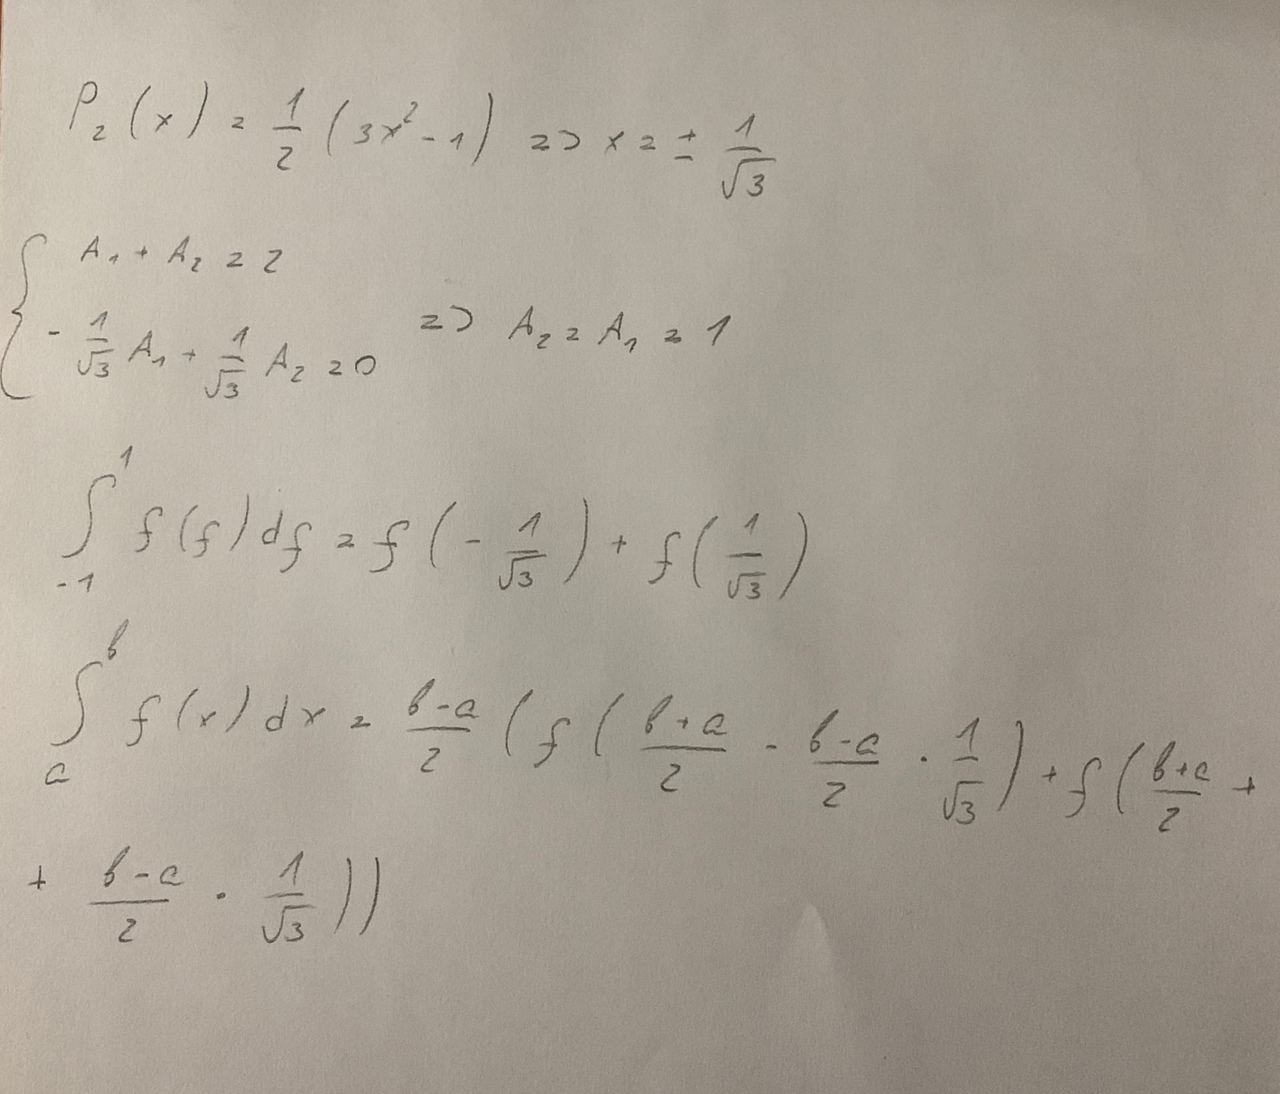 P₂(x) = 1/2 (3x² - 1) => x = ± 1/√3
{ A₁ + A₂ = 2
- 1/√3 A₁ + 1/√3 A₂ = 0 => A₂ = A₁ = 1
∫₋₁¹ f(f) df = f(- 1/√3) + f(1/√3)
∫ₐᵇ f(x) dx = (b-a)/2 (f((b+a)/2 - (b-a)/2 · 1/√3) + f((b+a)/2 +
+ (b-a)/2 · 1/√3))